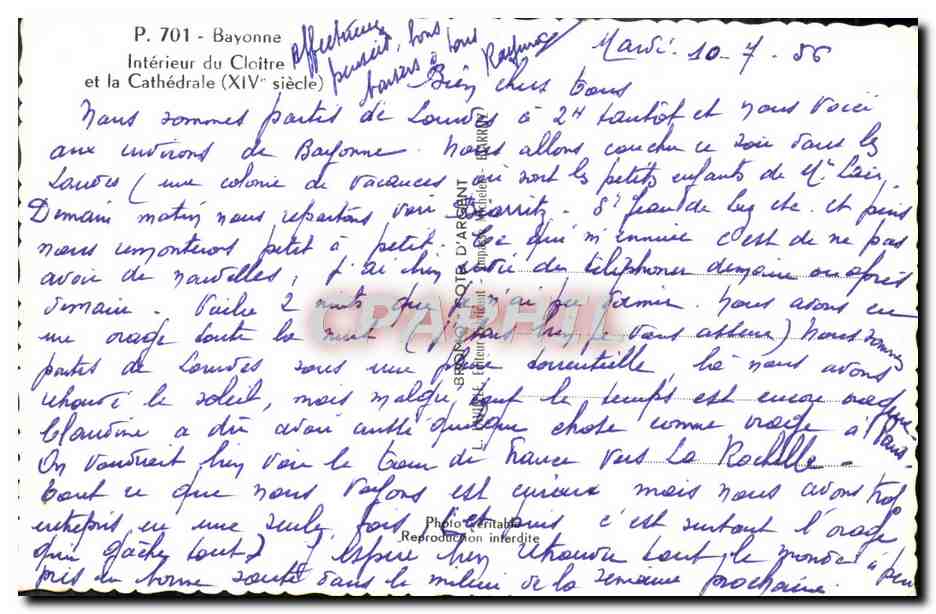 P. 701 - Bayonne
Intérieur du Cloître
et la Cathédrale (XIVe siècle)
Mardi 10-7-56
Bien chers tous
Nous sommes partis de Lourdes à 2H tantôt et nous voici
aux environs de Bayonne. Nous allons coucher ce soir dans les
Landes (une colonie de vacances où sont les petits enfants de
Demain matin nous repartons voir Biarritz. St Jean de Luz etc. et puis
nous remonterons petit à petit. Ce qui m'ennuie c'est de ne pas
avoir de nouvelles, j'ai bien envie de téléphoner demain ou après
demain. Voilà 2 nuits que je n'ai pu dormir. Nous avons eu
un orage toute la nuit (j'étais bien, je vous assure) Nous sommes
partis de Lourdes sous une pluie torrentielle, là nous avons
retrouvé le soleil, mais malgré tout le temps est encore orageux
Claudine a dû avoir aussi quelque chose comme orage à
On voudrait bien voir le tour de France vers La Rochelle -
tout ce que nous voyons est curieux mais nous avons trop
entrepris en une seule fois (et puis c'est surtout l'orage
qui gâche tout) J'espère bien retrouver tout le monde à peu
près en bonne santé dans le milieu de la semaine prochaine.
affectueuses
pensées, bons
baisers à tous
BROMOCOTE D'ARGENT
Photo véritable
Reproduction interdite
CPAPHIL